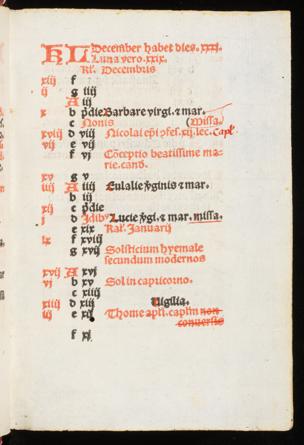 KL December habet dies. xxxj.
Luna vero. xxix.
Kl'. Decembris
xiij f
ij g iiij
A iij
x b pdie Barbare virgi. & mar.
c Nonis (Missa.
xviij d viij Nicolai epi pfes. xij. lec. Capl'.
vij e vij
f vj Cõceptio beatissime ma-
rie. canõ.
xv g v
iiij A iiij Eulalie v̄ginis & mar.
b iij
xij c pdie
j d Idib9 Lucie v̄gi. & mar. missa.
e xix Kal'. Januarij
ix f xviij
g xvij Solsticium hyemale
secundum modernos
xvij A xvj
vj b xv Sol in capricorno.
c xiiij
xiiij d xiij Uigilia.
iij e xij Thome apli. caplm non
conversis
f xj